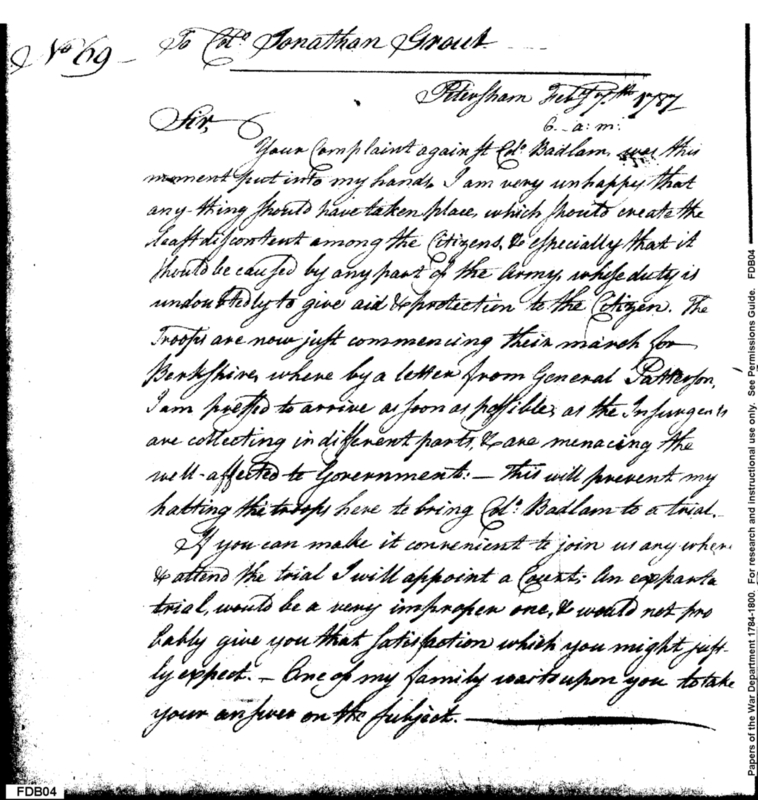 No 69 — To Colo Jonathan Grout
Petersham Feby 7.th 1787
6. a: m:
Sir,
Your Complaint against Colo. Badlam, was this
moment put into my hands, I am very unhappy that
any-thing should have taken place, which should create the
least discontent among the Citizens, & especially that it
should be caused by any part of the Army, whose duty is
undoubtedly to give aid & protection to the Citizen. The
Troops are now just commencing their march for
Berkshire, where by a letter from General Patterson,
I am pressed to arrive as soon as possible, as the Insurgents
are collecting in different parts, & are menacing the
well-affected to Government: — This will prevent my
halting the troops here to bring Colo. Badlam to a trial.
If you can make it convenient to join us any where
& attend the trial I will appoint a Court; An exparta
trial, would be a very improper one, & would not pro
bably give you that satisfaction which you might just-
ly expect. — One of my family waits upon you to take
your answer on the subject. —
FDB04
Papers of the War Department 1784-1800. For research and instructional use only. See Permissions Guide. FDB04